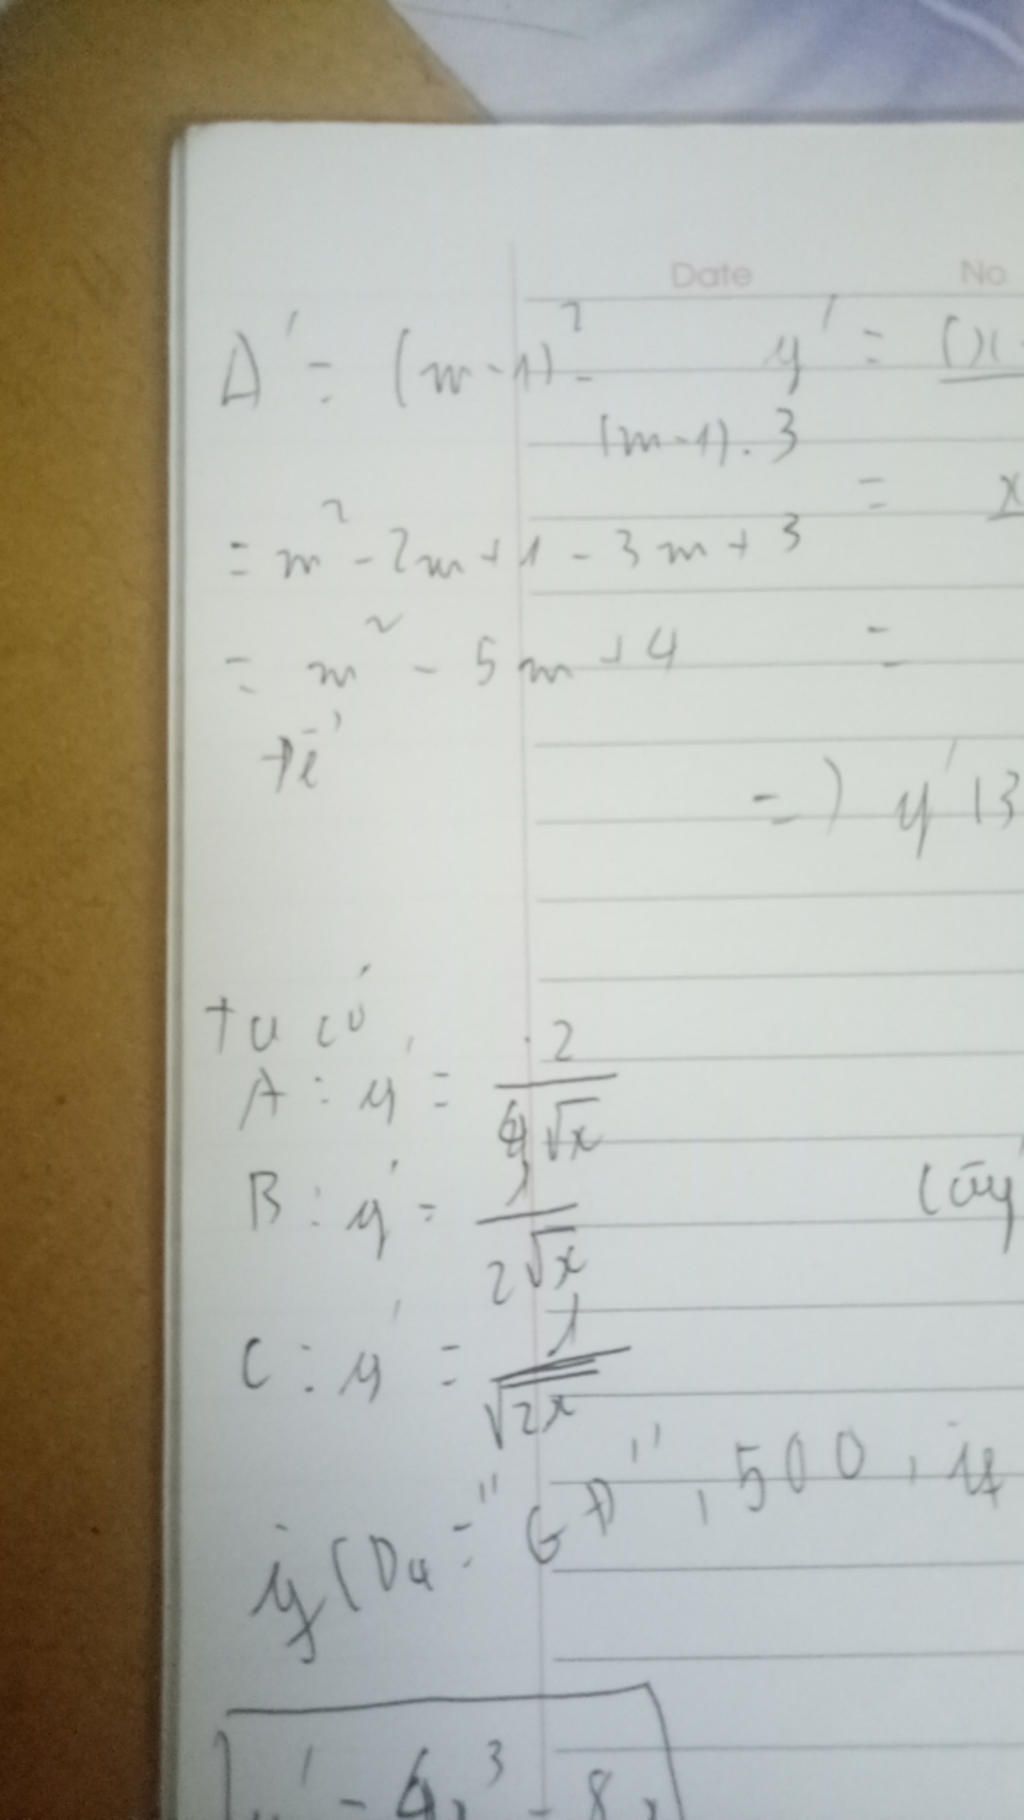 Date No
Δ' = (m-1)² -
(m-1).3
= m² - 2m + 1 - 3m + 3
= m² - 5m + 4
để
y' = (x
= x
=
=) y'(3
ta có,
A: y' = 2/(4√x)
B: y' = 1/(2√x)
C: y' = 1/√2x
if(D4="GĐ",500,if
y' = 4x³ - 8x